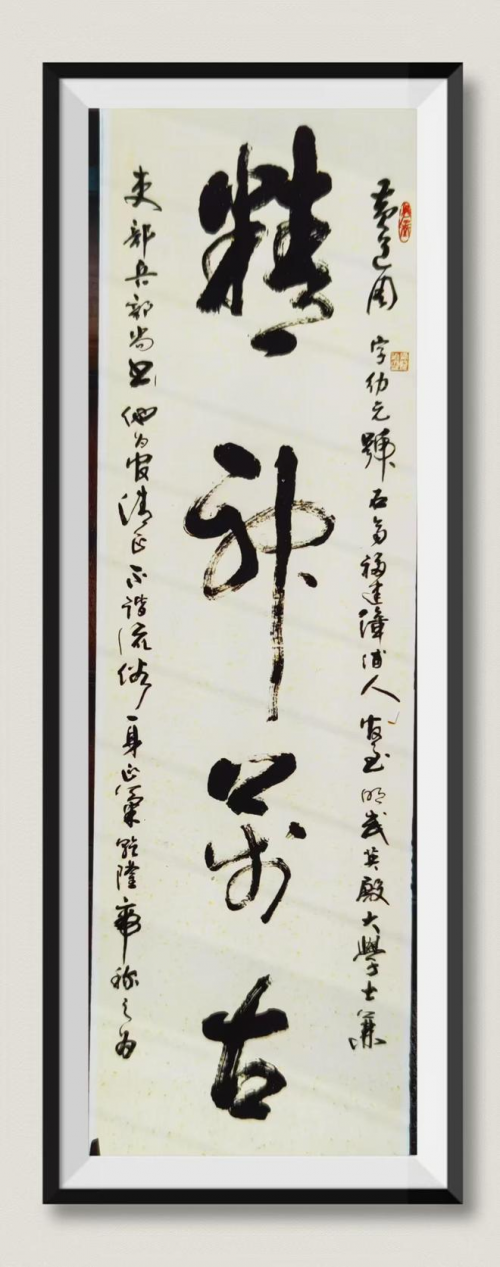 黄道周 字幼元號石斋福建漳浦人官至明武英殿大學士兼
精神萬古
吏部兵部尚书他为官清正不谐流俗一身正氣乾隆帝称之为